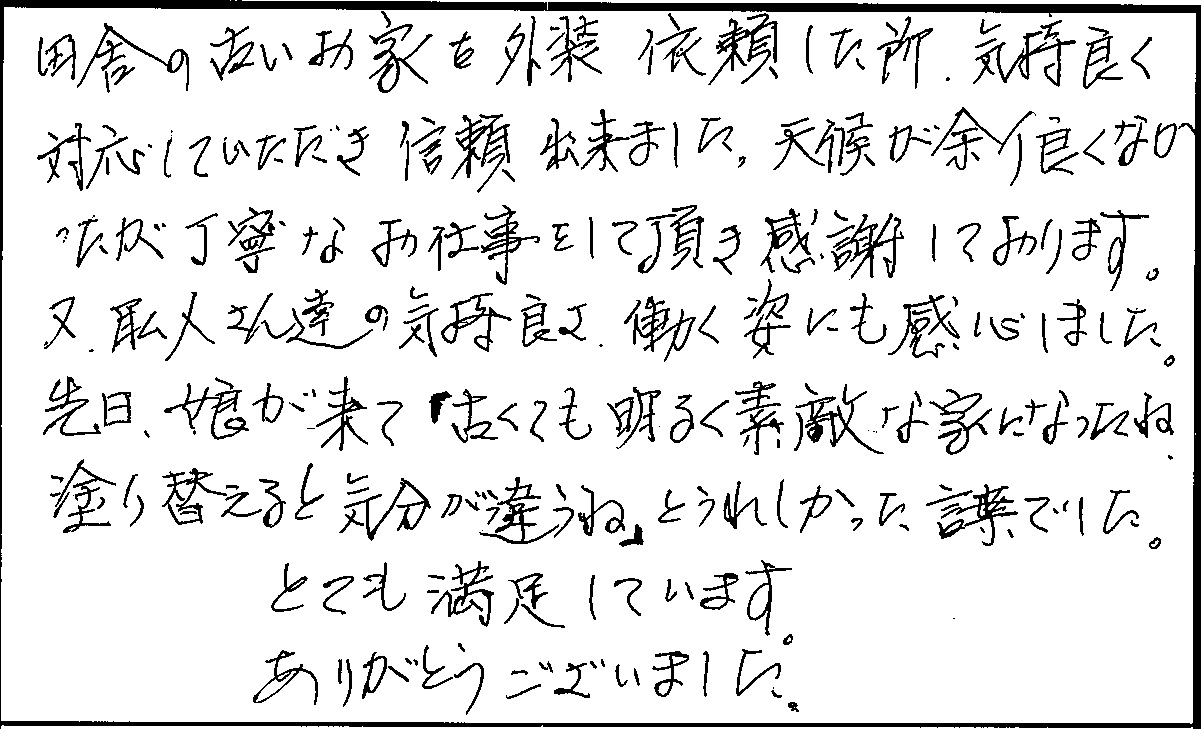 田舎の古いお家を外装 依頼した所、気持良く
対応していただき 信頼 出来ました。天候が余り良くなか
ったが丁寧なお仕事をして頂き感謝しております。
又、職人さん達の気持良さ、働く姿にも感心しました。
先日、娘が来て「古くても明るく素敵な家になったね、
塗り替えると気分が違うね」とうれしかった言葉でした。
とても満足しています。
ありがとうございました。